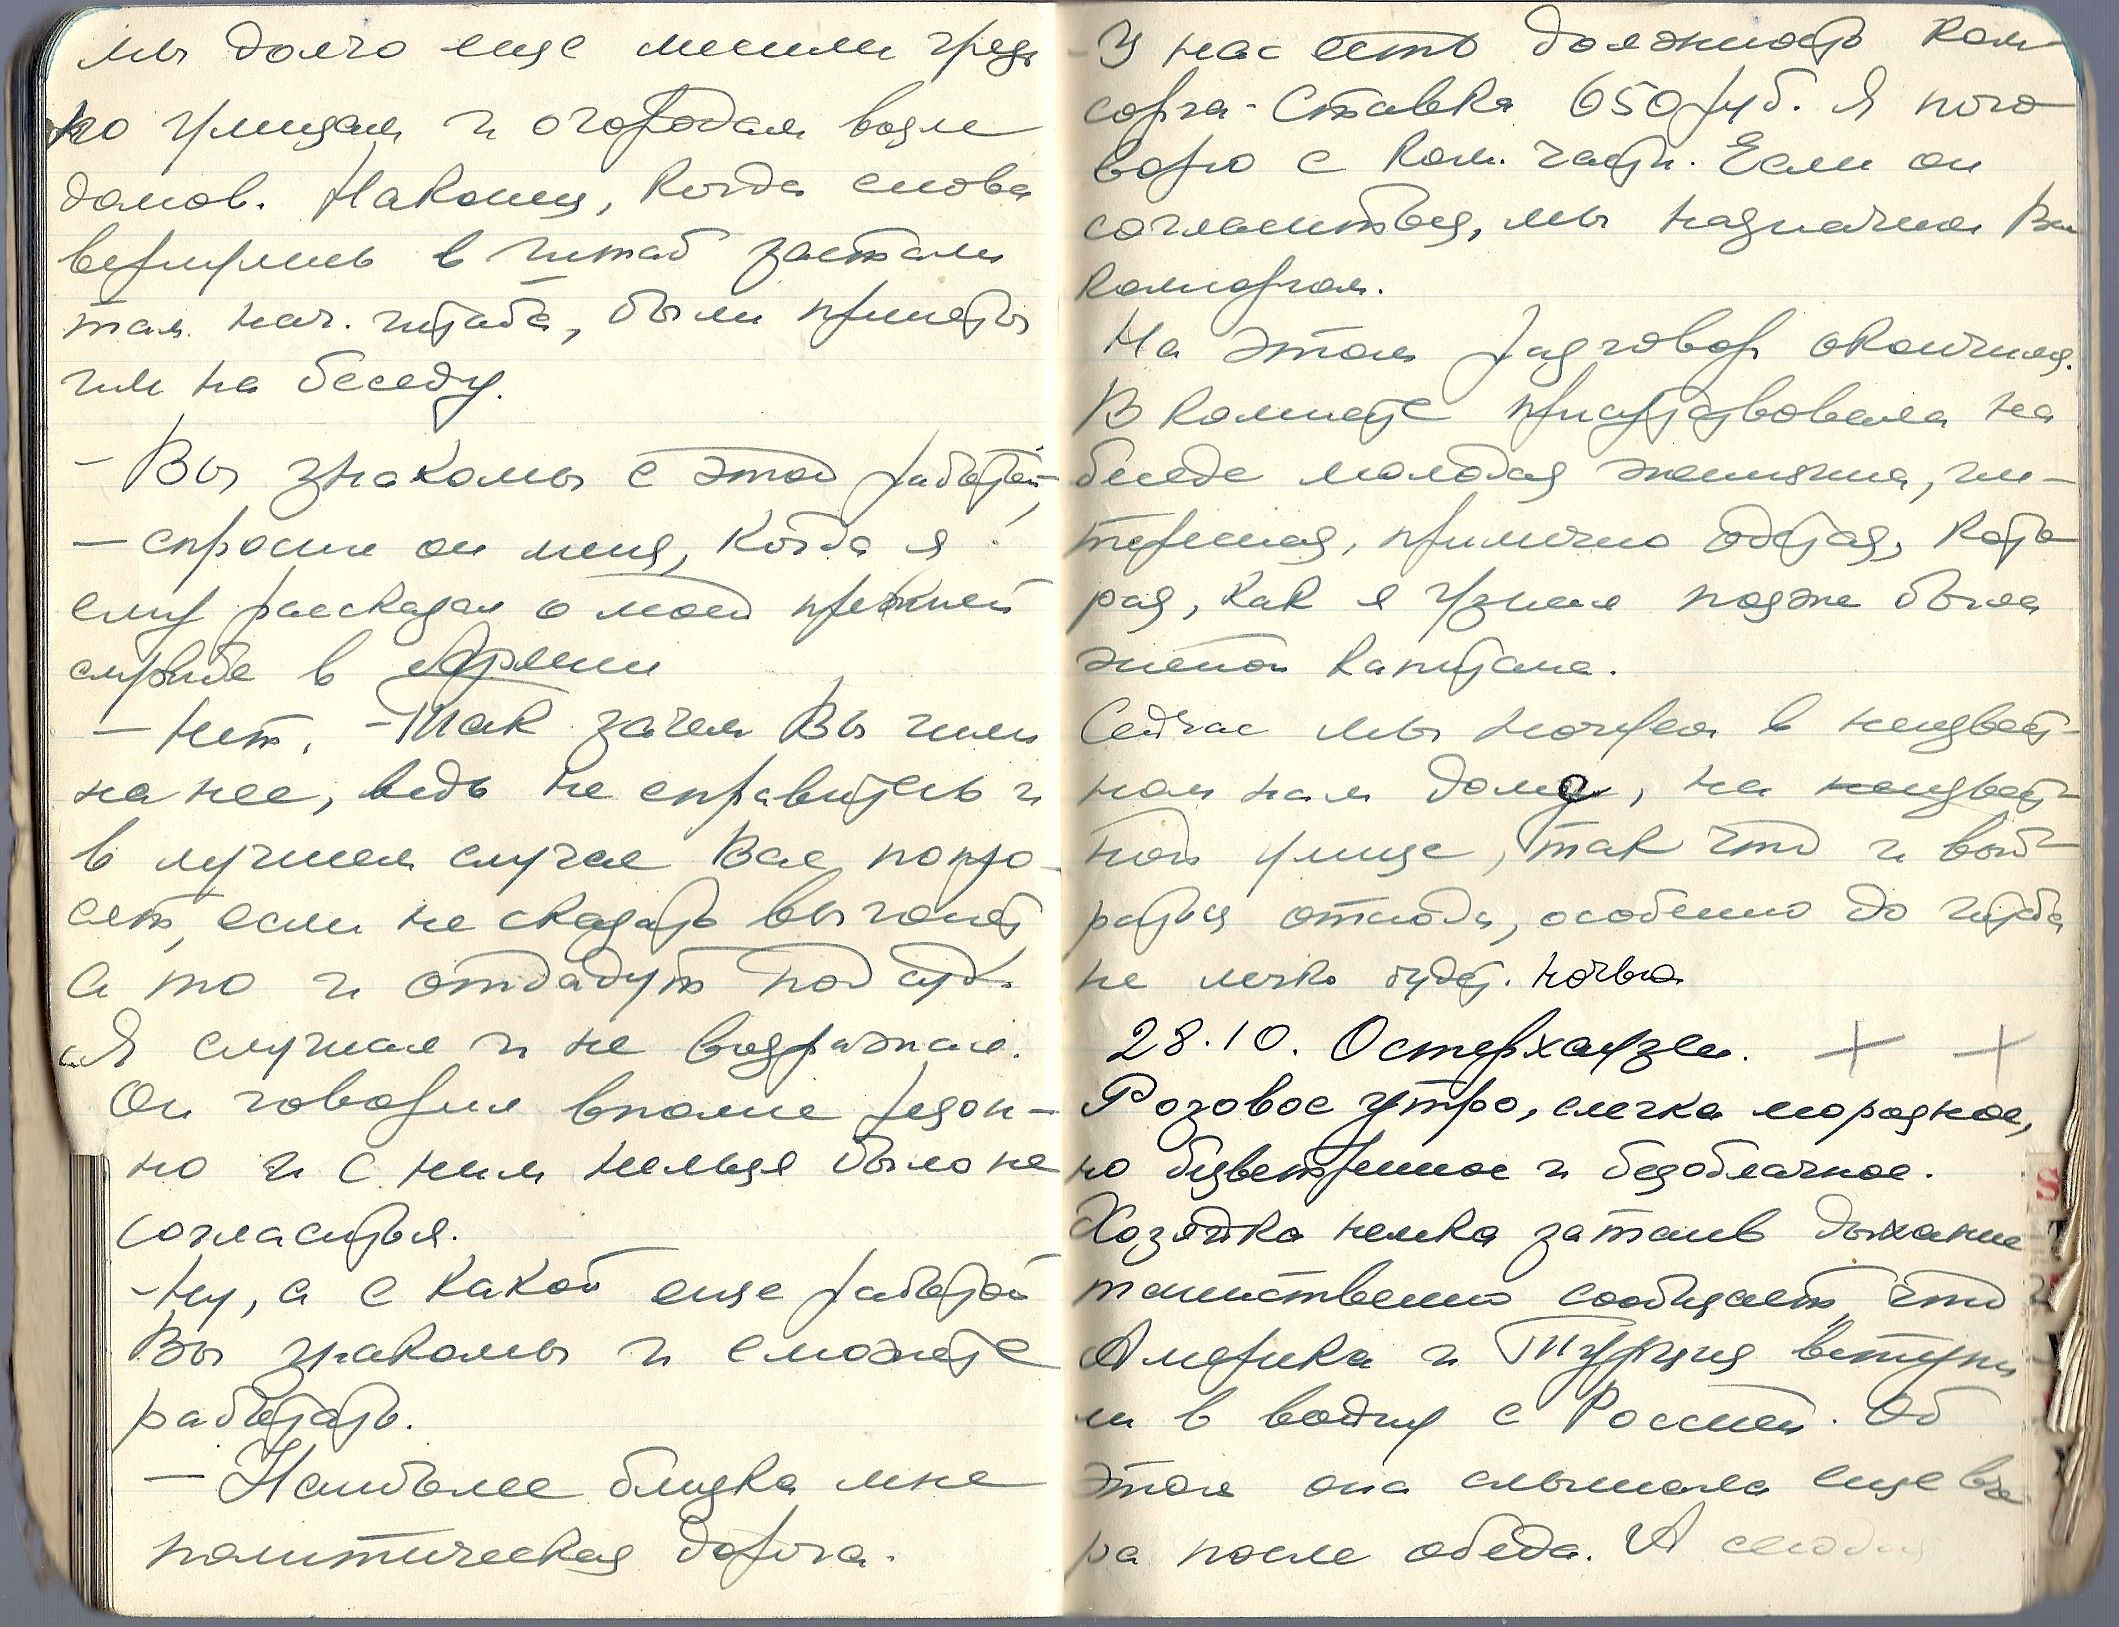 мы долго еще месили грязь
по улицам и огородам возле
домов. Наконец, когда снова
вернулись в штаб застали
там нач. штаба, были пригла
на беседу.
- Вы знакомы с этой работой,
- спросил он меня, когда я
ему рассказал о моей прежней
службе в Армии
- Нет. - Так зачем Вы шли
на нее, ведь не справитесь и
в лучшем случае Вас попро-
сят, если не сказать выгонят,
а то и отдадут под суд.
Я слушал и не возражал.
Он говорил вполне резон-
но и с ним нельзя было не
согласиться.
- Ну, а с какой еще работой
Вы знакомы и сможете
работать.
- Наиболее близка мне
политическая дорога.
- У нас есть должность ком-
сорга - Ставка 650 руб. Я пого-
ворю с ком. части. Если он
согласиться, мы назначим Вас
комсоргом.
На этом разговор окончился.
В комнате присутствовала на
беседе молодая женщина, ин-
тересная, прилично одетая, кото
рая, как я узнал позже была
женой капитана.
Сейчас мы ночуем в неизвест-
ном нам доме, на неизвест-
ной улице, так что и выб-
раться отсюда, особенно до штаба
не легко будет. ночью
28.10. Остерхаузен.
Розовое утро, слегка морозное,
но безветренное и безоблачное.
Хозяйка немка затаив дыхание
таинственно сообщает, что
Америка и Турция вступи
ли в войну с Россией. Об
этом она слышала еще вче
ра после обеда. А сегодня